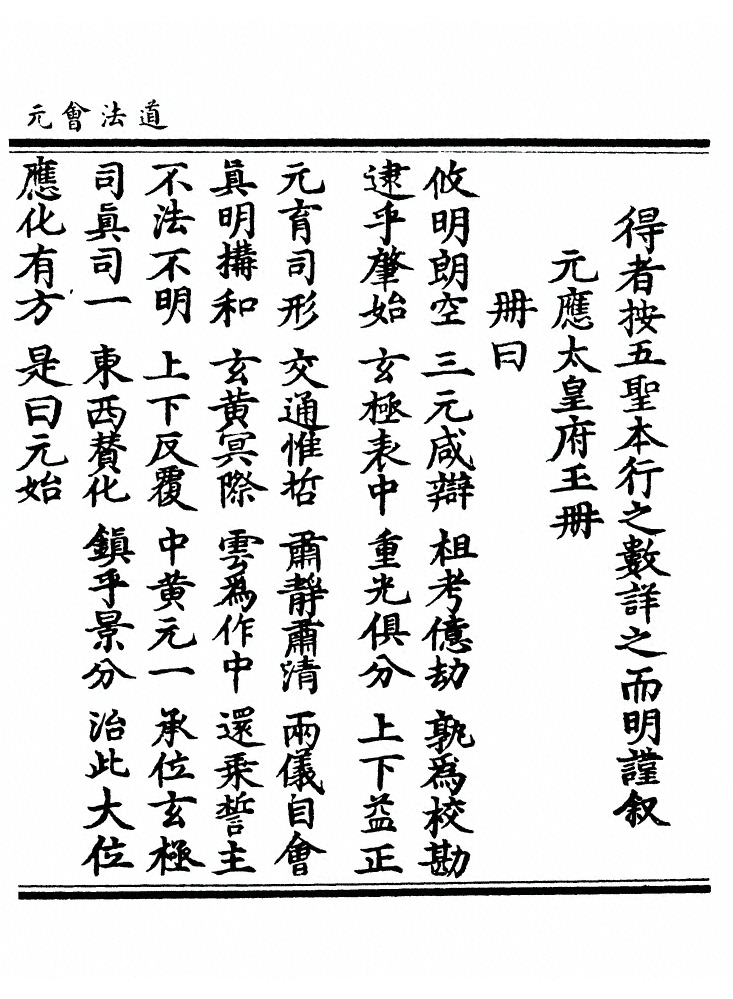 道法會元
得者按五聖本行之數詳之而明謹叙
元應太皇府玉冊
冊曰
攸明朗空 三元咸辯 柤考億劫 孰爲校勘
逮乎肇始 玄極表中 重光俱分 上下益正
元育司形 交通惟哲 肅靜肅清 兩儀自會
眞明搆和 玄黄冥際 雲爲作中 還乘誓主
不法不明 上下反覆 中黄元一 承位玄極
司眞司一 東西賛化 鎭乎景分 治此大位
應化有方 是曰元始